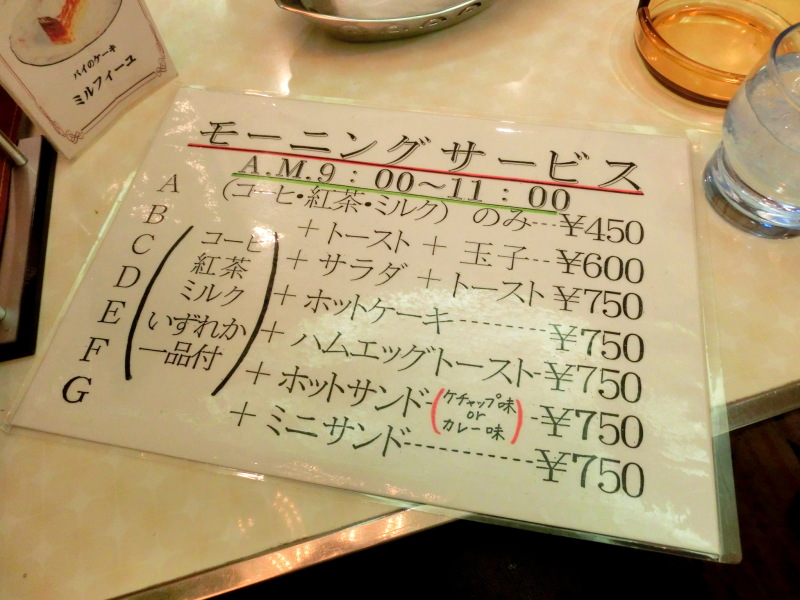 パイのケーキ
ミルフィーユ
モーニングサービス
A.M.9：00〜11：00
A （コーヒ・紅茶・ミルク）のみ---¥450
B ＋トースト＋玉子--¥600
C ＋サラダ＋トースト¥750
D ＋ホットケーキ--------¥750
E ＋ハムエッグトースト-¥750
F ＋ホットサンド-(ケチャップ味 or カレー味)¥750
G ＋ミニサンド-----------¥750
(コーヒ
紅茶
ミルク
いずれか
一品付)